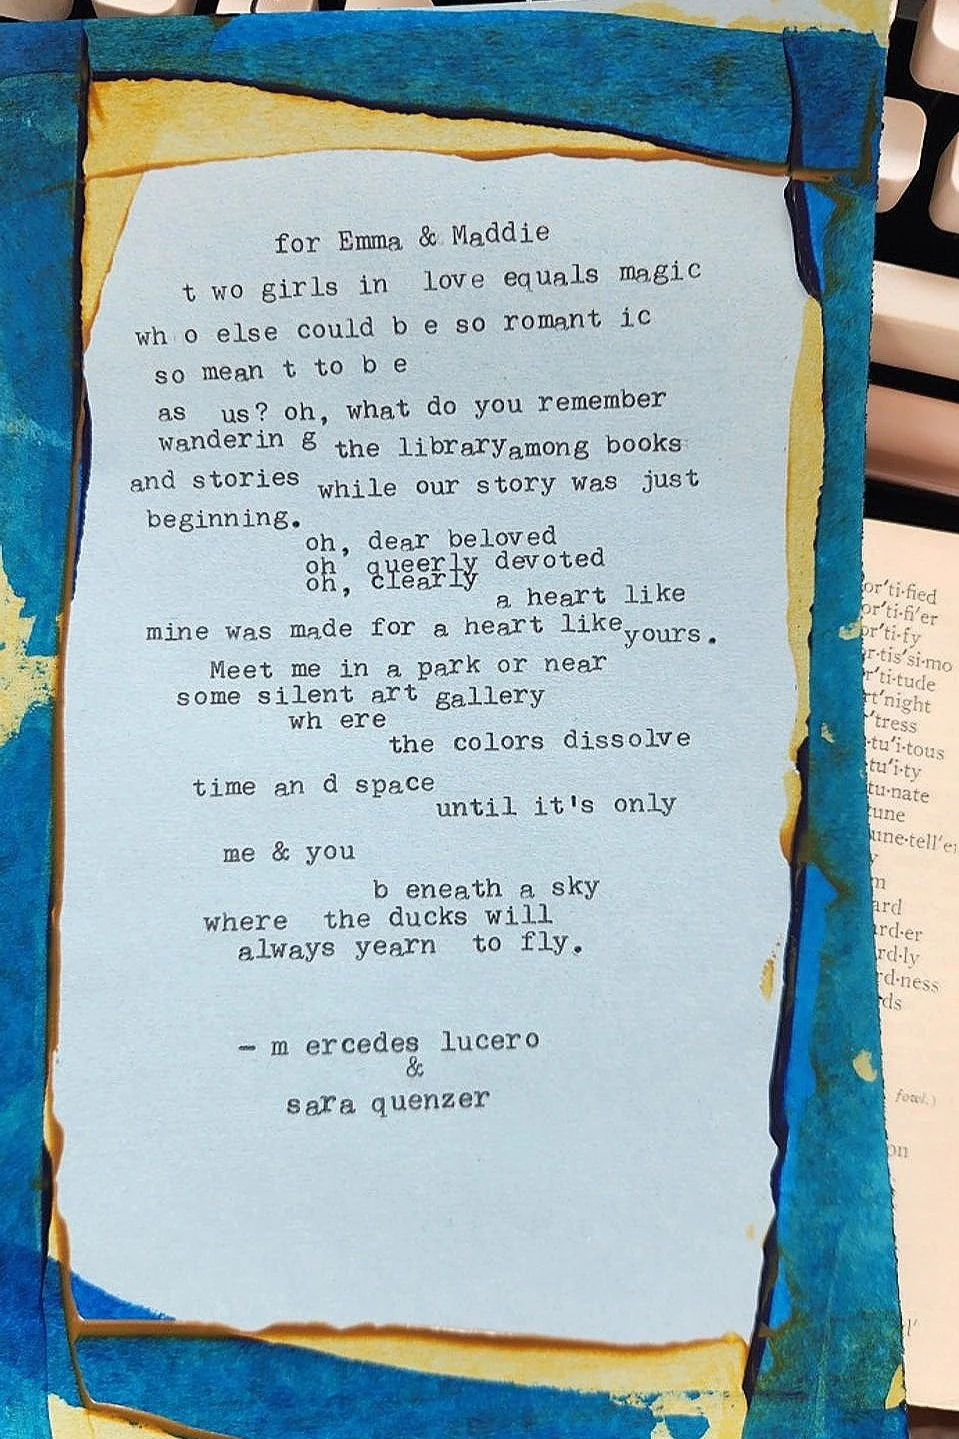 for Emma & Maddie
t wo girls in love equals magic
wh o else could b e so romant ic
so mean t to b e
as us? oh, what do you remember
wanderin g the library among books
and stories while our story was just
beginning.
oh, dear beloved
oh queerly devoted
oh, clearly
a heart like
mine was made for a heart like yours.
Meet me in a park or near
some silent art gallery
wh ere
the colors dissolve
time an d space
until it's only
me & you
b eneath a sky
where the ducks will
always yearn to fly.
— m ercedes lucero
&
sara quenzer
or′ti·fied
or′ti·fi′er
or′ti·fy
r·tis′si·mo
r′ti·tude
rt′night
r′tress
·tu′i·tous
·tu′i·ty
tu·nate
tune
une·tell′e
ard
ard·er
rd·ly
rd·ness
rds
fowl.)
on